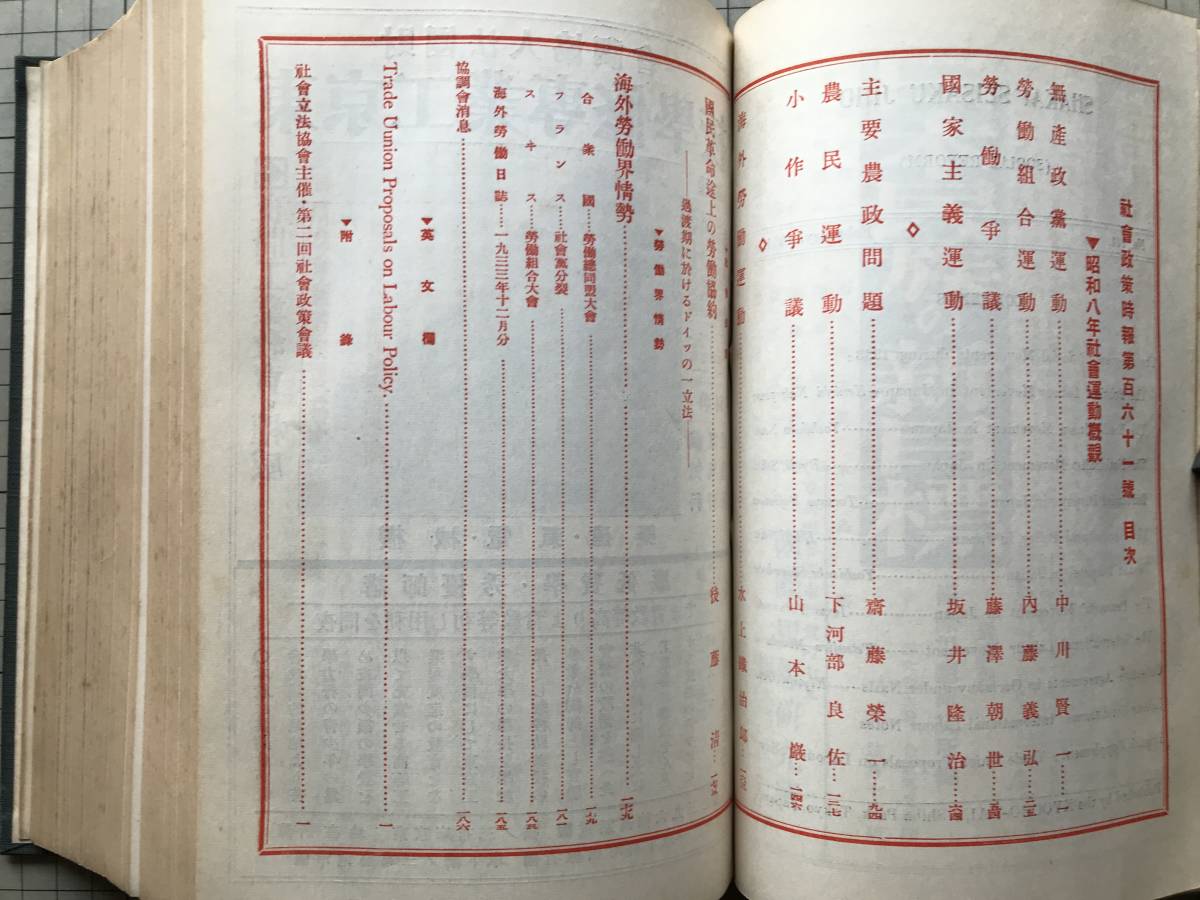 社會政策時報第百六十一號 目次
▼昭和八年社會運動概觀
無產政黨運動 中川賢一
勞働組合運動 內藤義弘
勞働爭議 藤澤朝世
國家主義運動 坂井隆治
◇
主要農政問題 齋藤榮一 九四
農民運動 下河部良佐
小作爭議 山本巖 一四六
◇
海外勞働運動 水上鐵治郎
國民革命途上の勞働協約 後藤清
——過渡期に於けるドイツの一立法——
▼勞働界情勢
海外勞働界情勢 一七九
合衆國 勞働總同盟大會 一七九
フランス 社會黨分裂 一八一
スヰス 勞働組合大會 一八三
海外勞働日誌 一九三三年十二月分 一八五
協調會消息 一八六
▼英文欄
Trade Uunion Proposals on Labour Policy. 一
▼附錄
社會立法協會主催・第二回社會政策會議 一
SHAKAI SEISAKU JIHO